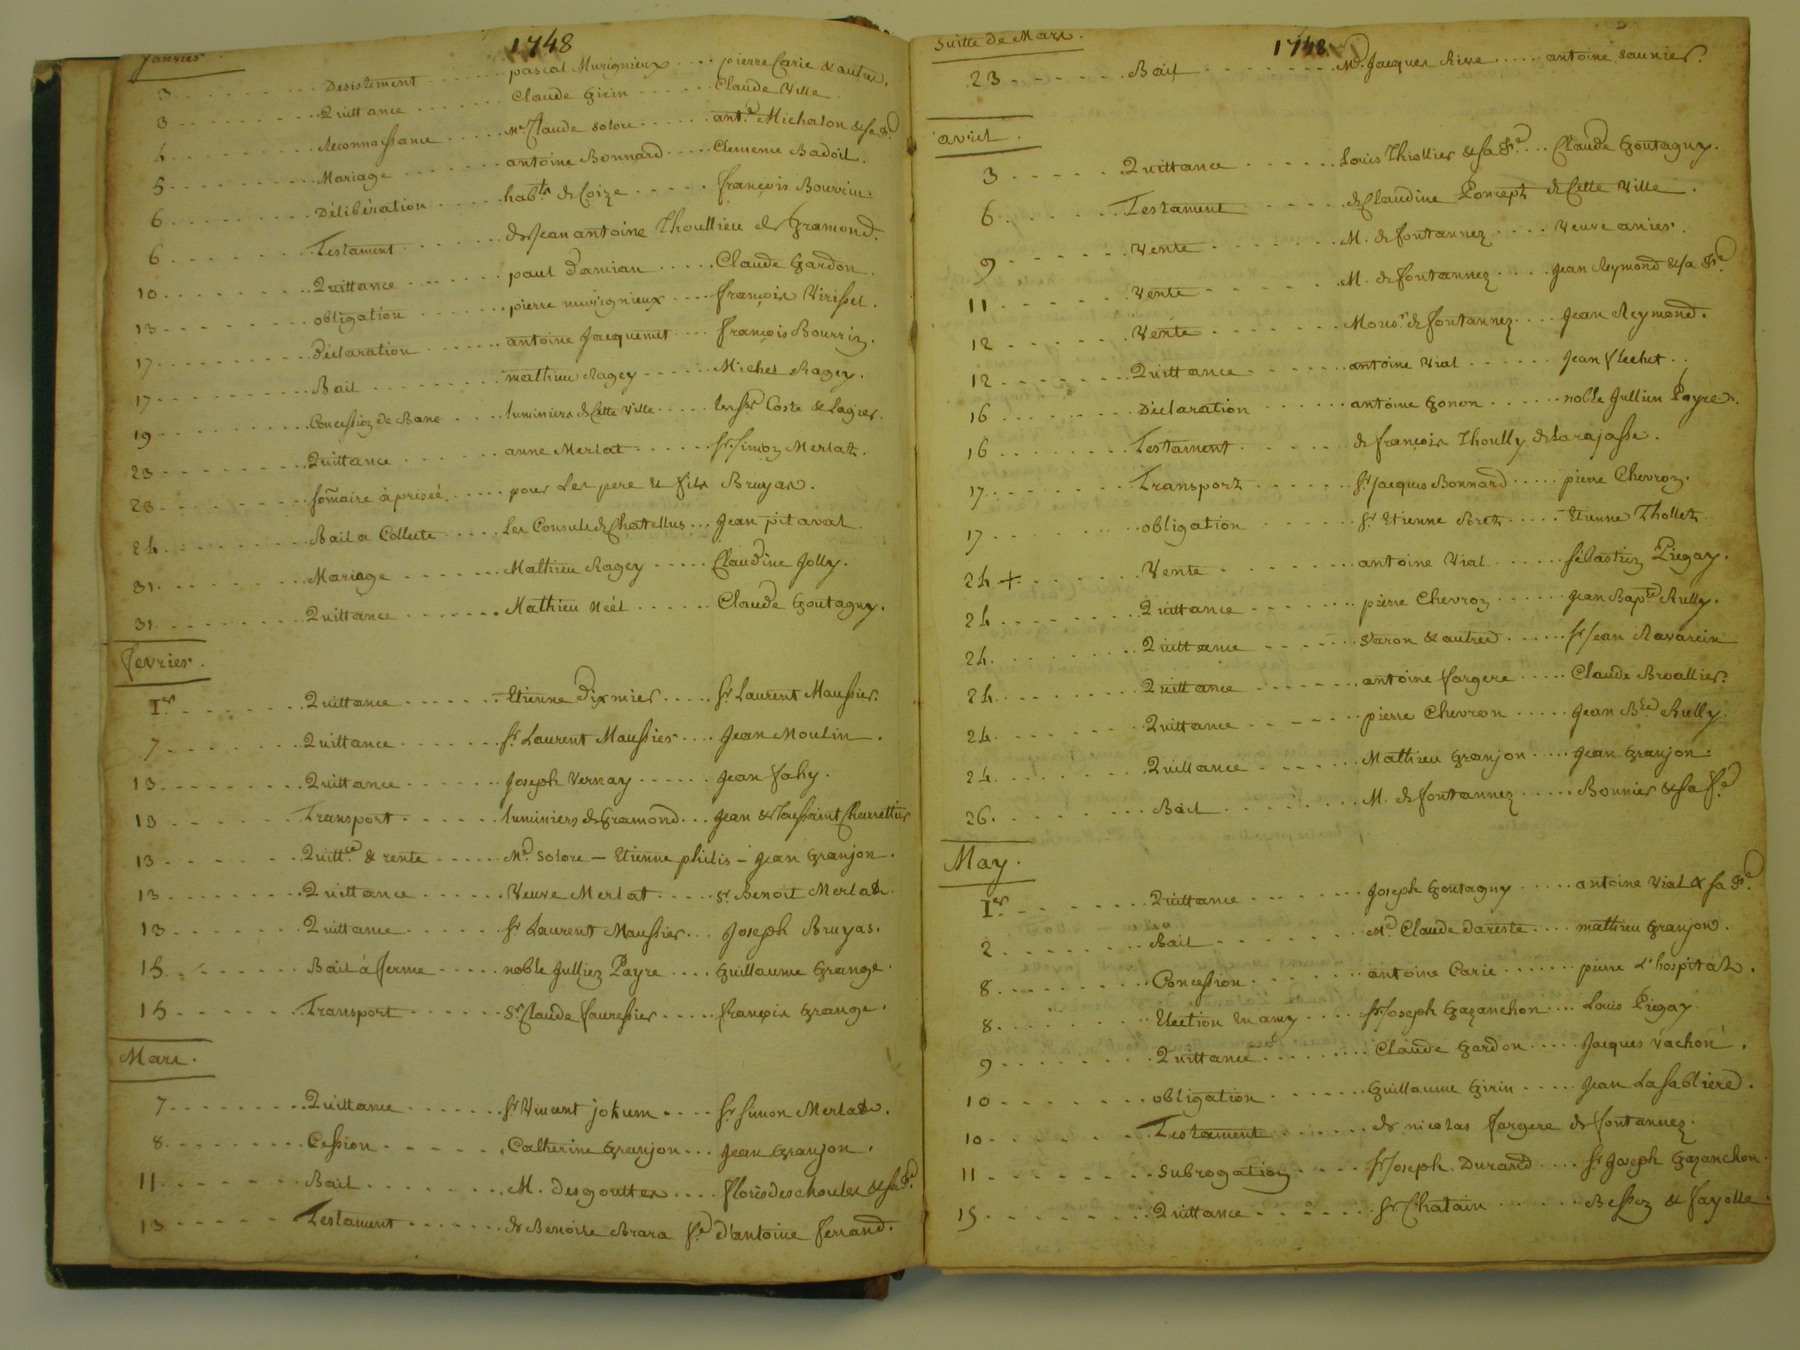 1748
Janvier.
3 Desistement pascal Murignieux pierre Carie & autres.
3 Quittance Claude Girin Claude Ville
4 Reconnoissance Mr Claude Solore ant.e Michalon & sa fe
5 Mariage antoine Bonnard Clemence Badoil.
6 Délibération habts de Coize françois Bourrin.
6 Testament de Jean antoine Thoullieu de Gramond.
10 Quittance paul Damian Claude Gardon.
13 obligation pierre murignieux françois Virissel.
17 déclaration antoine Jacquemet françois Bourrin.
17 Bail mathieu Ragey Michel Ragey.
19 Concession de Banc luminiers de Cette Ville les srs Coste & Lagier.
23 Quittance anne Merlat sr. simon Merlat.
23 somaire à prisée pour Les pere & fils Bruyas.
24 Bail a Collecte Les Consuls de Chatellus Jean pitaval
31 Mariage Mathieu Ragey Claudine Jolly.
31 Quittance Mathieu Néél Claude Goutagny.
fevrier.
Ier Quittance Etienne Dixmier sr. Laurent Maussier.
7 Quittance sr. Laurent Maussier Jean Moulin.
13 Quittance Joseph Vernay Jean Fahy.
13 Transport luminiers de Gramond Jean & Toussaint Charretier
13 Quittce & rente Md. Solore — Etienne philis — Jean Granjon.
13 Quittance Veuve Merlat sr. Benoit Merlat.
13 Quittance sr. Laurent Maussier Joseph Bruyas.
15 Bail à ferme noble Jullien Payre Guillaume Grange.
15 Transport Sr Claude Fauressier françois Grange.
Mars.
7 Quittance sr. Vincent jokum sr. simon Merlat.
8 Cession Catherine Granjon Jean Granjon.
11 Bail M. Desgouttes floris deschoulx & sa fe
13 Testament de Benoite Brara fe d'antoine ferrand.
1748
Suitte de Mars.
23 Bail Md. Jacques Rive antoine saunier.
avril.
3 Quittance Louis Thiollier & sa fe Claude Goutagny.
6 Testament de Claudine Poncept de Cette Ville.
9 Vente M. de fontannez Veuve anier.
11 Vente M. de fontannez Jean Reymond & sa fe
12 Vente Monsr. de fontannez Jean Reymond.
12 Quittance antoine Vial Jean flechet.
16 Déclaration antoine Gonon noble Jullien Payre.
16 Testament de françois Thoully de Larajasse.
17 Transport sr. Jacques Bonnard pierre Chevron.
17 obligation sr Etienne Bret Etienne Thollet.
24 + Vente antoine Vial sébastien Piegay.
24 Quittance pierre Chevron Jean Bapte Rully.
24 Quittance Varon & autres sr. Jean Ravarein
24 Quittance antoine fargere Claude Broallier.
24 Quittance pierre Chevron Jean Bte Rully.
24 Quittance Mathieu Granjon Jean Granjon.
26 Bail M. de fontannez Bonnier & sa fe
May.
Ier Quittance Joseph Goutagny antoine Vial & sa fe
2 Bail Md Claude dareste mathieu Granjon.
8 Concession antoine Carie pierre L'hospital.
8 Election en amy sr. Joseph Gazanchon Louis Piegay
9 Quittance Claude Gardon Jacques Vachon.
10 obligation Guillaume Girin Jean Lasabliere.
10 Testament de nicolas fargere de fontannez.
11 subrogation sr Joseph Durand sr Joseph Gazanchon.
15 Quittance sr Chatain Bessez & fayolle.